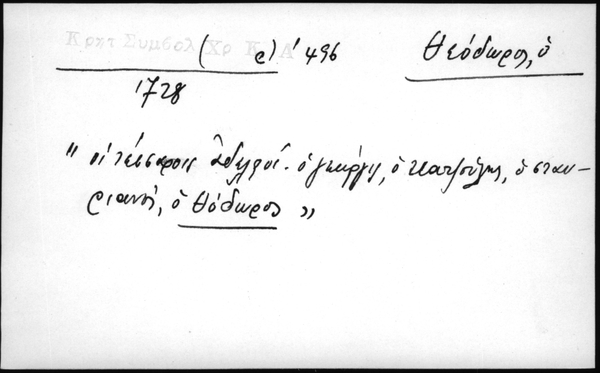 Κρητ Συμβολ Χρ Κ Α
( c) 496
Θεόδωρος, ὁ
1728
" οἱ τέσσαροις ἀδελφοί· ὁ Γεώργης, ὁ ὁ σταυ-
ριανός, ὁ Θόδωρος "